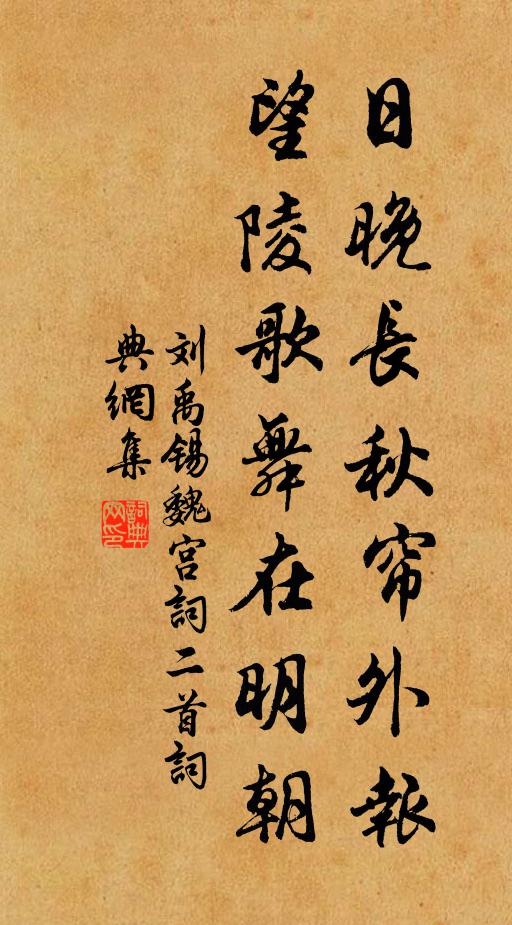 日晚長秋帘外報
望陵歌舞在明朝
刘禹锡魏宫詞二首詞
典網集
詞典网印